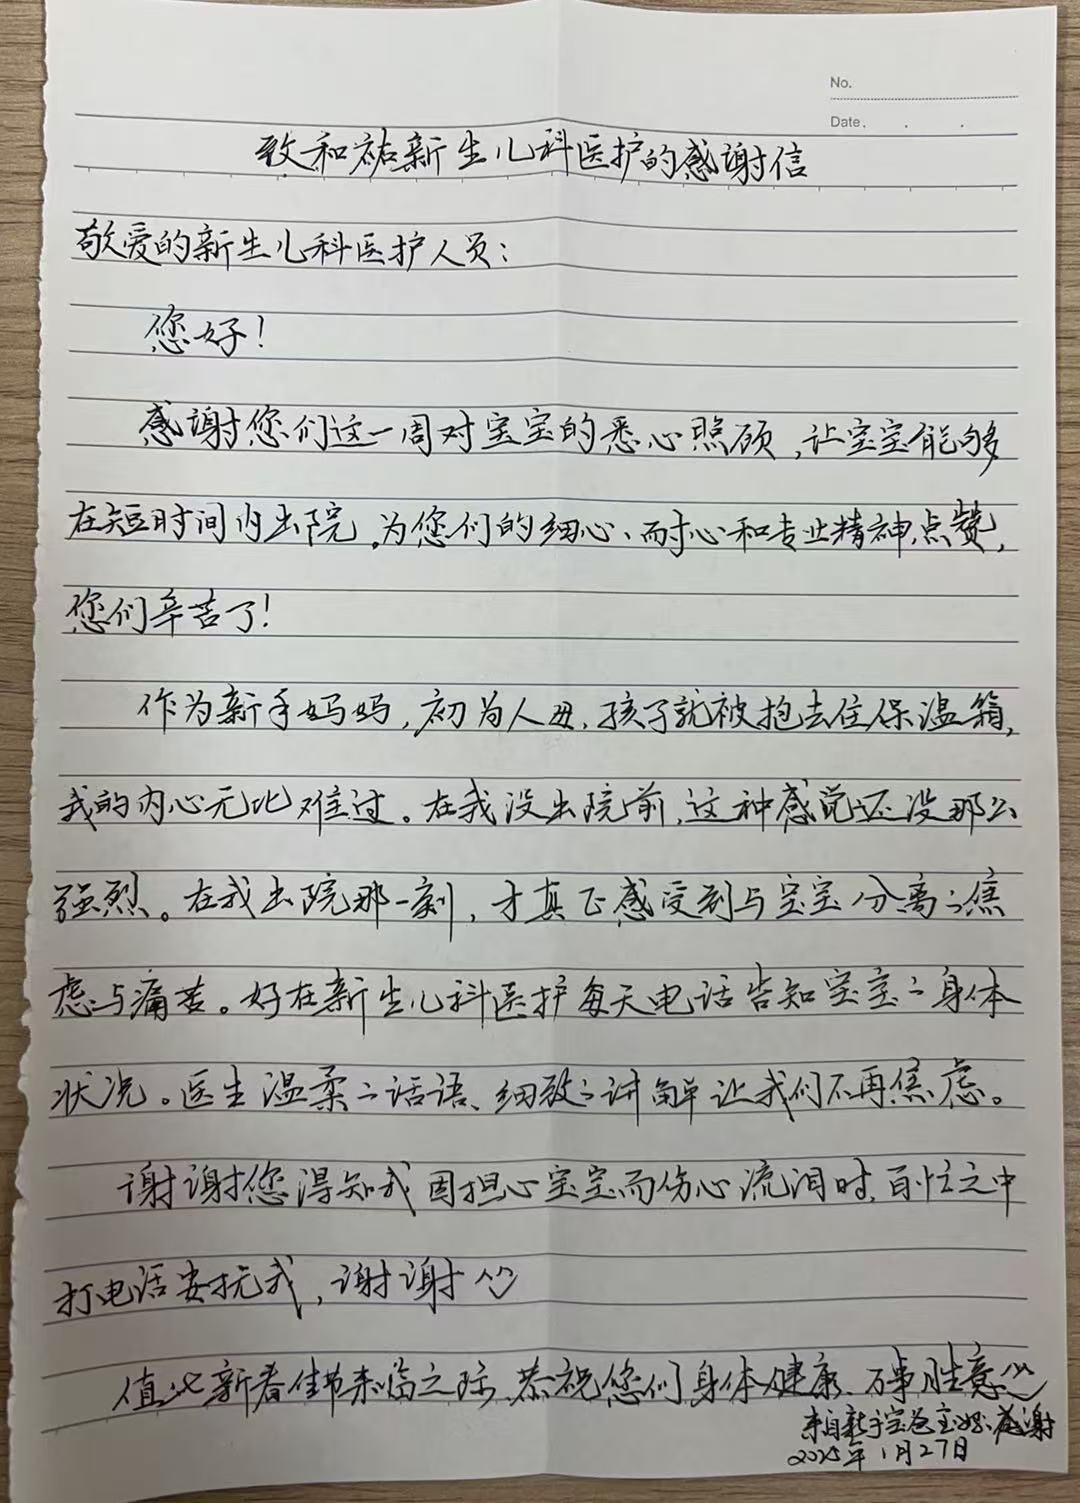 No.
Date. . .
致和祐新生儿科医护的感谢信
敬爱的新生儿科医护人员：
您好！
感谢您们这一周对宝宝的悉心照顾，让宝宝能够
在短时间内出院。为您们的细心、耐心和专业精神点赞，
您们辛苦了！
作为新手妈妈，初为人母，孩子就被抱去住保温箱，
我的内心无比难过。在我没出院前，这种感觉还没那么
强烈。在我出院那一刻，才真正感受到与宝宝分离之焦
虑与痛苦。好在新生儿科医护每天电话告知宝宝之身体
状况。医生温柔之话语、细致之讲解让我们不再焦虑。
谢谢您得知我因担心宝宝而伤心流泪时，百忙之中
打电话安抚我，谢谢^^
值此新春佳节来临之际，恭祝您们身体健康、万事胜意^^
来自新手宝爸宝妈感谢
2025年1月27日